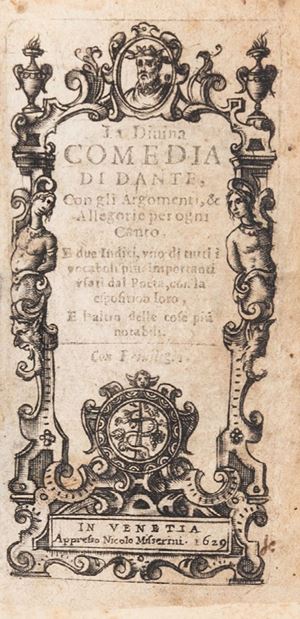 La Diuina
COMEDIA
DI DANTE,
Con gli Argomenti, &
Allegorie per ogni
Canto.
E due Indici, vno di tutti i
vocaboli più importanti
vsati dal Poeta, con la
esposition loro,
E l'altro delle cose più
notabili.
Con Priuilegi.
IN VENETIA
Appresso Nicolo Misserini. 1629